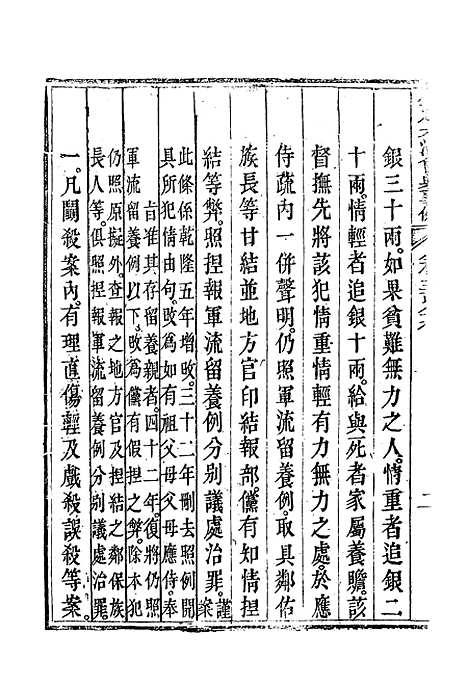 銀三十兩。如果貧難無力之人。情重者追銀二
十兩。情輕者追銀十兩。給與死者家屬養贍。該
督撫先將該犯情重情輕有力無力之處。於應
侍疏内一併聲明。仍照軍流留養例。取具鄰佑
族長等甘結並地方官印結報部。儻有知情捏
結等弊。照捏報軍流留養例分别議處治罪。謹案
此條係乾隆五年增改。三十二年刪去照例開
具所犯情由句。改為如有祖父母父母應侍。奉
旨准其存留養親者。四十二年。復將仍照
軍流留養例以下。改為儻有假捏之弊。除本犯
仍照原擬外。查報之地方官及捏結之鄰保族
長人等。俱照捏報軍流留養例分别議處治罪。
一。凡鬭殺案內。有理直傷輕及戲殺誤殺等案。